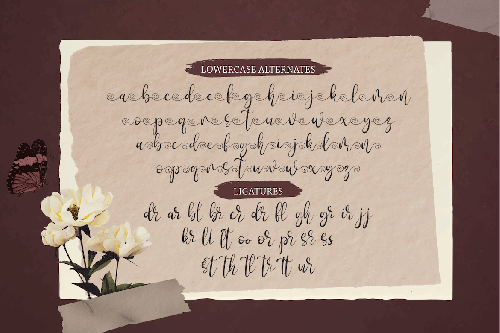 LOWERCASE ALTERNATES
a b c d e f g h i j k l m n
o p q r s t u v w x y z
a b c d e f g h i j k l m n
o p q r s t u v w x y z
LIGATURES
dr ar bl br cr dr fl gh gr ir jj
kr ll lt oo or pr sr es
st th tl tr tt ur